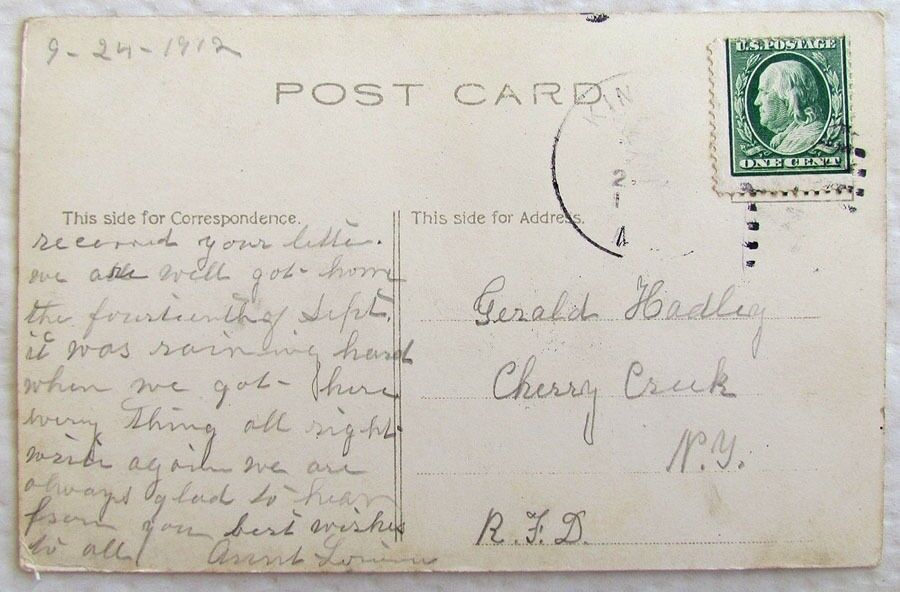 9-24-1912
POST CARD
KIN
2
1
A
U.S. POSTAGE
ONE CENT
This side for Correspondence.
recevied your letter.
we are well got home
the fourteenth of Sept.
it was raining hard
when we got- here
every thing all right
write again we are
always glad to hear
from you best wishes
to all Aunt
This side for Address.
Gerald Hadley
Cherry Creek
N.Y.
R.F.D.